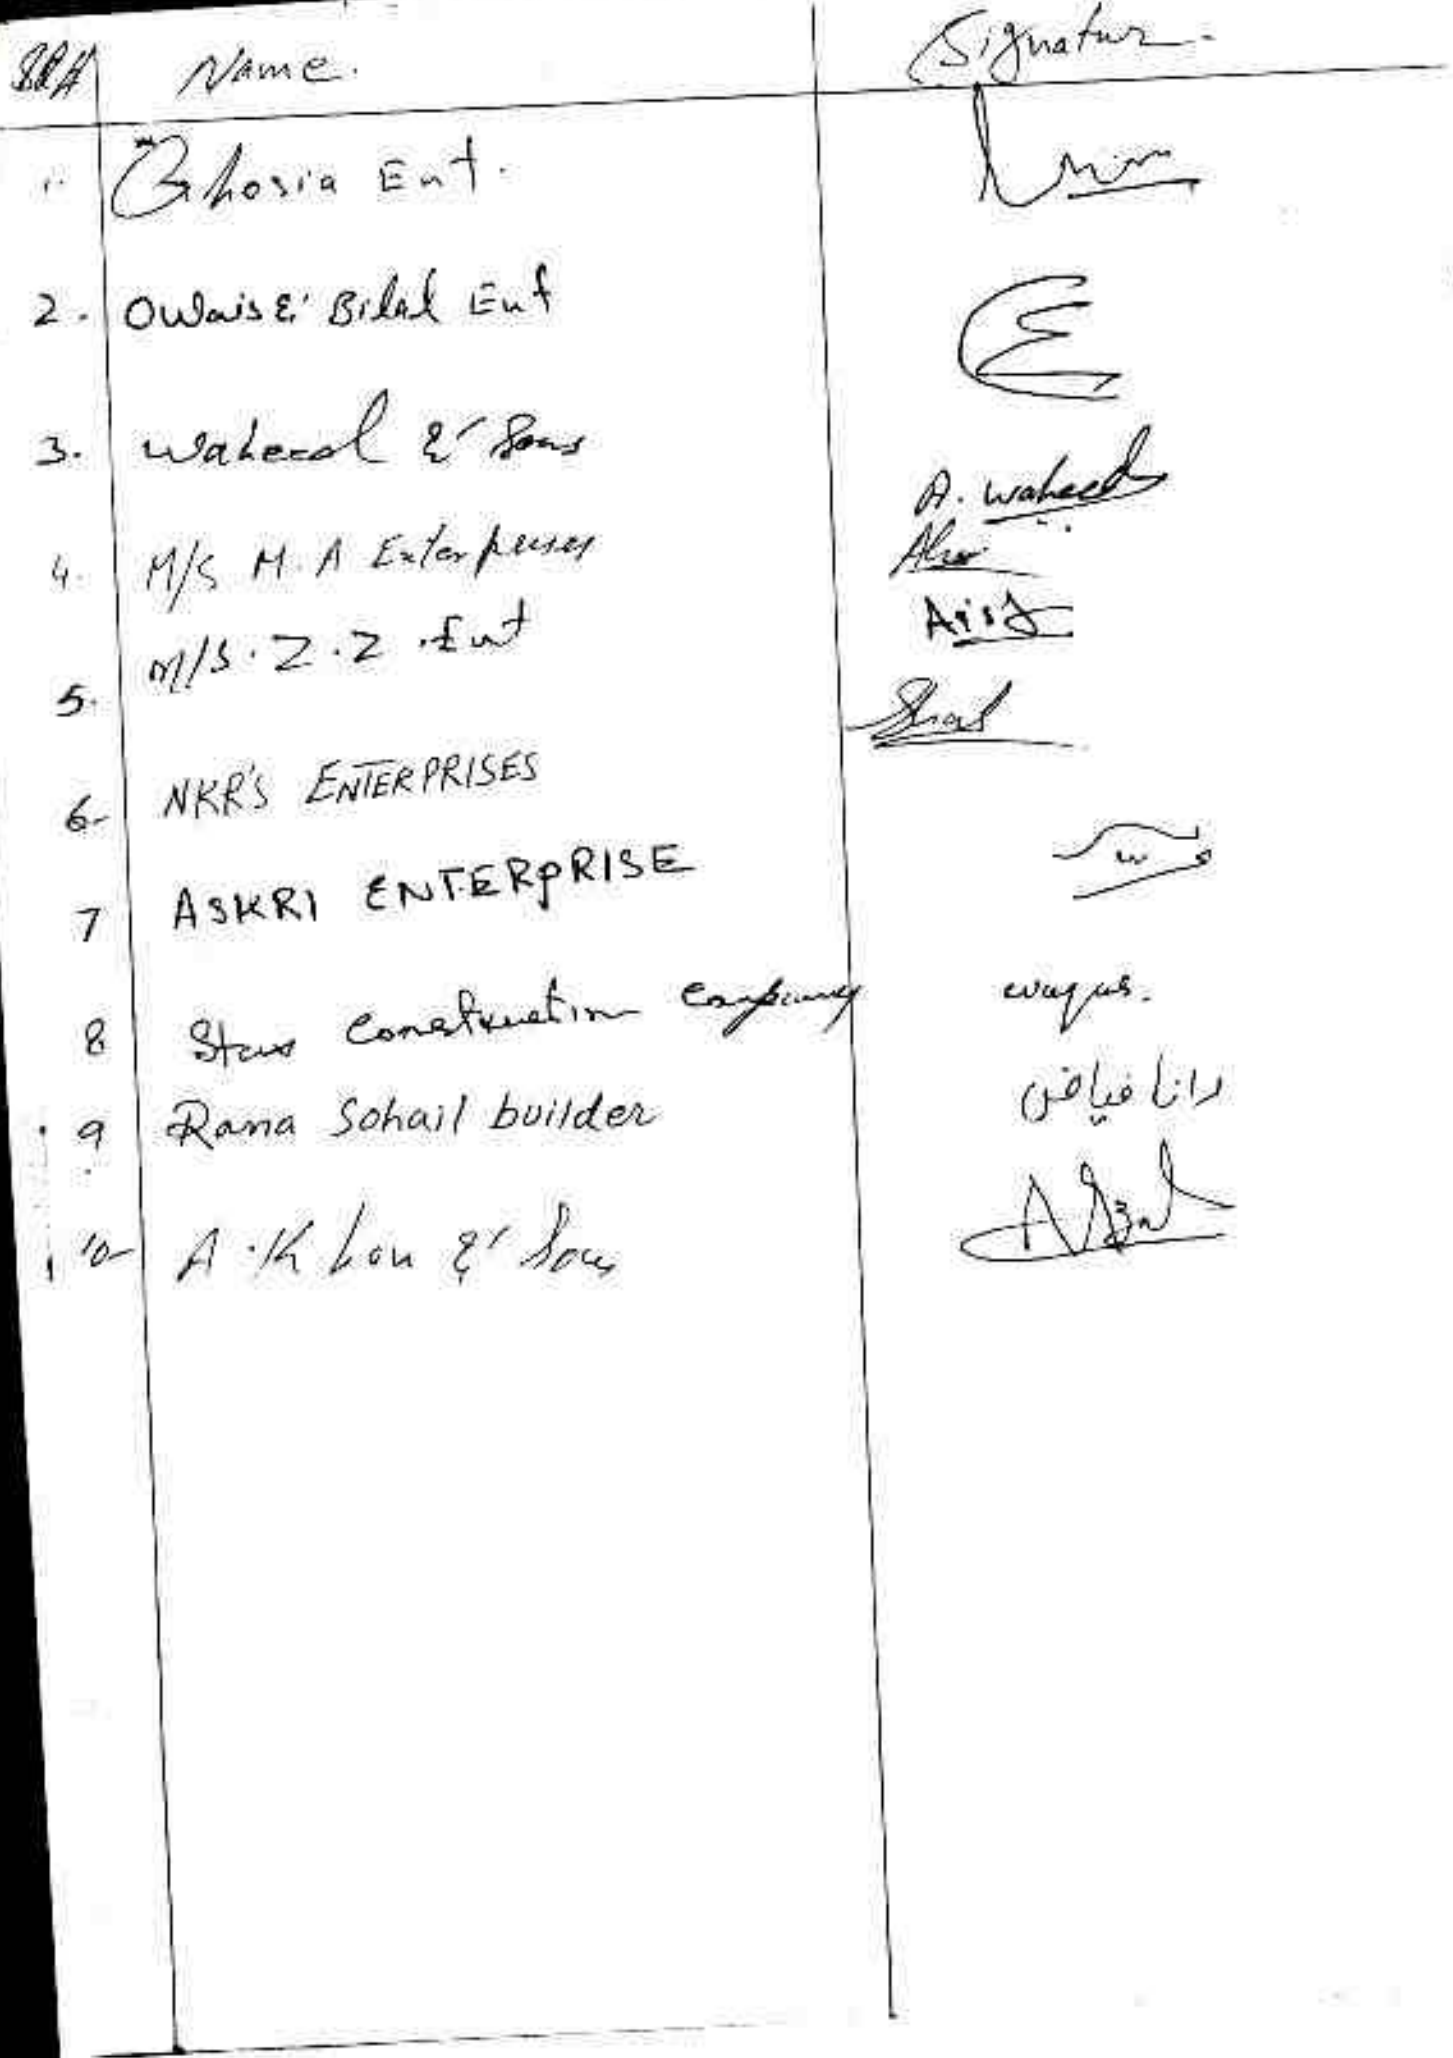 SR# Name. Signatur.
1. Ghosia Ent.
2. Owais & Bilal Ent
3. Waheed & Sons A. waheed
4. M/S M.A Enterprises
M/S. Z.Z. Ent Arif
5.
6- NKR'S ENTERPRISES
7 ASKRI ENTERPRISE
8 Star Construction Company waqas.
9 Rana Sohail builder رانا فیاض
10- A.Khan & Sons Afzal